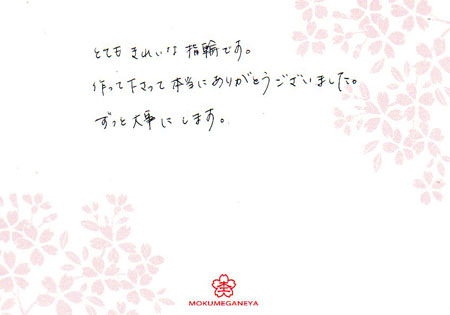 とても きれいな 指輪です。
作って下さって本当にありがとうございました。
ずっと大事にします。
MOKUMEGANEYA